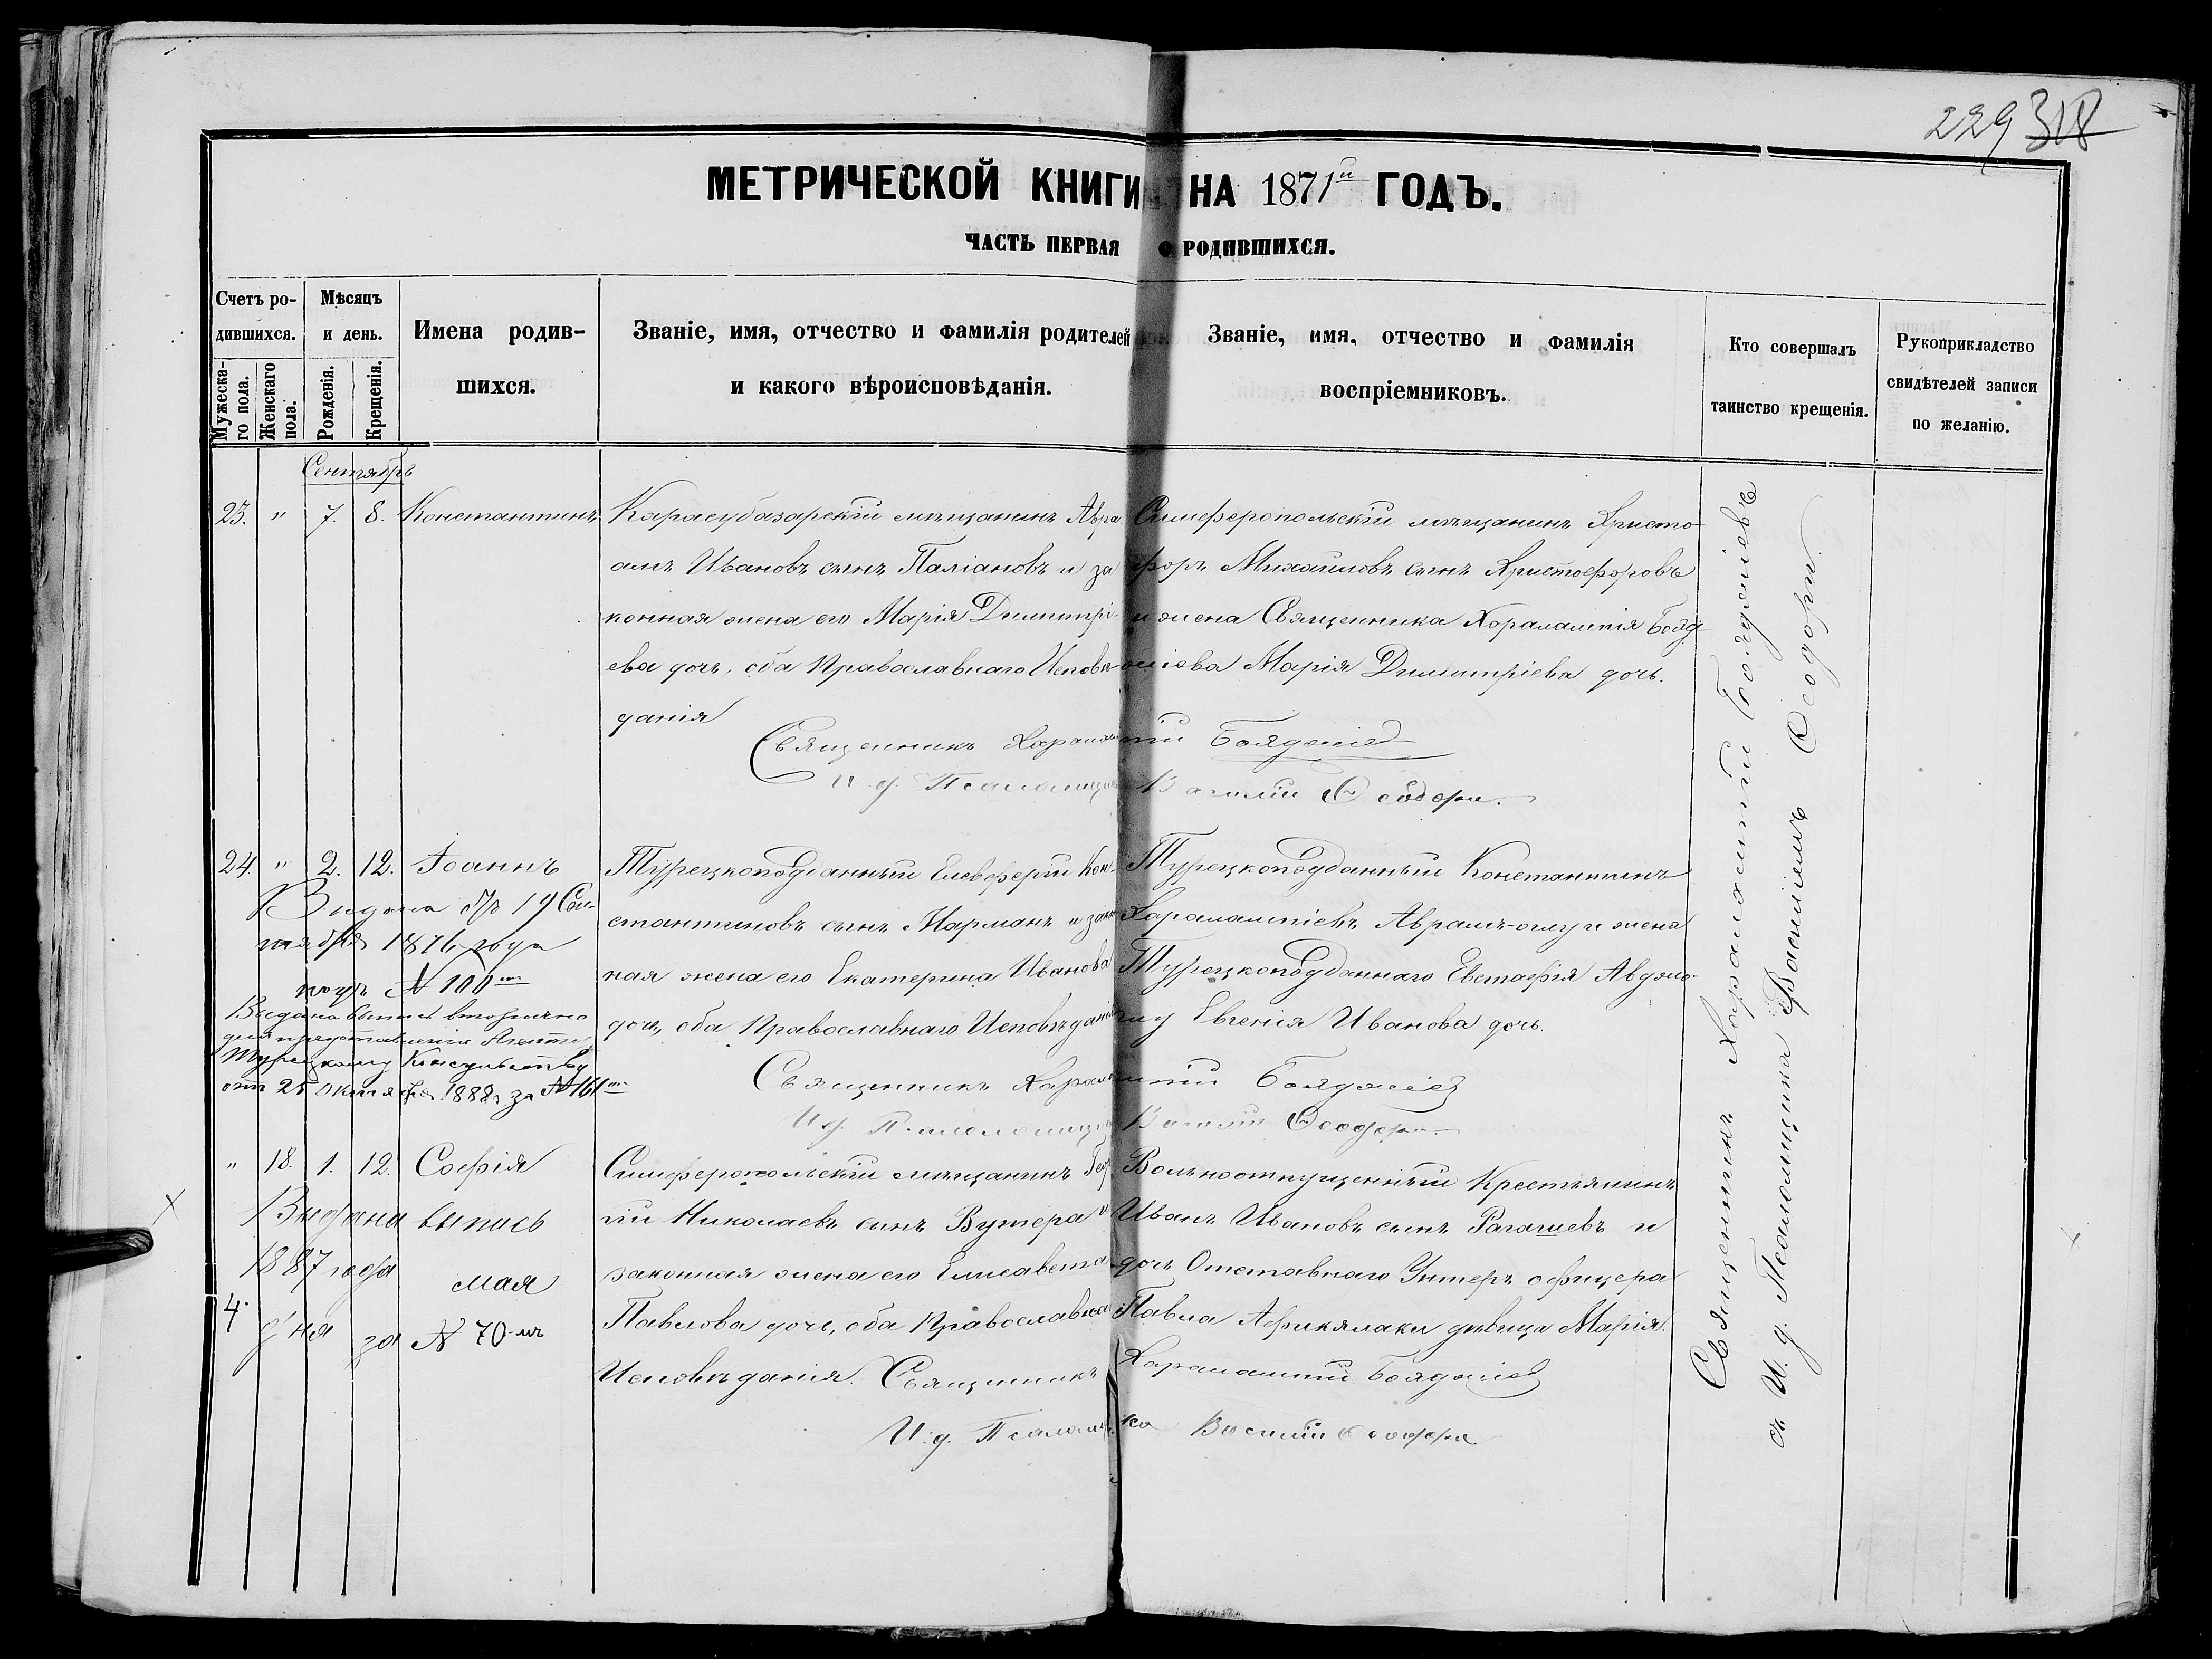 229 318
МЕТРИЧЕСКОЙ КНИГИ НА 1871й ГОДЪ.
ЧАСТЬ ПЕРВАЯ О РОДИВШИХСЯ.
Счетъ ро-
дившихся.
Мужеска-
го пола.
Женскаго
пола.
Мѣсяцъ
и день.
Рожденія.
Крещенія.
Имена родив-
шихся.
Званіе, имя, отчество и фамилія родителей
и какого вѣроисповѣданія.
Званіе, имя, отчество и фамилія
воспріемниковъ.
Кто совершалъ
таинство крещенія.
Рукоприкладство
свидѣтелей записи
по желанію.
Сентябрь
23. " 7. 8. Константинъ
Карасубазарскій мѣщанинъ Авра
амъ Ивановъ сынъ Паліановъ и за
конная жена его Марія Димитрі-
ева дочь, оба Православнаго Исповѣ-
данія
Симферопольскій мѣщанинъ Христо-
форъ Михаиловъ сынъ Христофоровъ
и жена Священника Харалампія Бояд
жіева Марія Димитріева дочь.
Священникъ Харалампій Бояджіев
И. д. Псаломщика Василій Ѳеодори.
24. " 2. 12. Іоаннъ
Выдана 19 Сен-
тября 1876 года
подъ № 100
Выдана вторично
для представленія
Турецкому Консульству
отъ 25 октября 1888 за № 161
Турецкоподданный Елевферій Кон-
стантиновъ сынъ Марманъ и закон
ная жена его Екатерина Иванова
дочь, оба Православнаго Исповѣданія
Турецкоподданный Константинъ
Харалампіевъ Аврамъ-оглу и жена
Турецкоподданнаго Евстафія Авджо-
глу Евгенія Иванова дочь.
Священникъ Харалампій Бояджіев
И. д. Псаломщика Василій Ѳеодори.
" 18. 1. 12. Софія
Выдана выпись
1887 года мая
4. дня за № 70-мъ
Симферопольскій мѣщанинъ Геор
гій Николаевъ сынъ Вутера и
законная жена его Елисавета
Павлова дочь, оба Православнаго
Исповѣданія.
Вольноотпущенный Крестьянинъ
Иванъ Ивановъ сынъ Рагашевъ и
дочь Отставнаго Унтеръ офицера
Павла Африкялаки дѣвица Марія.
Священникъ Харалампій Бояджіев
И. д. Псаломщика Василій Ѳеодори
Священникъ Харалампій Бояджіевъ
съ И. д. Псаломщика Василіемъ Ѳеодори.